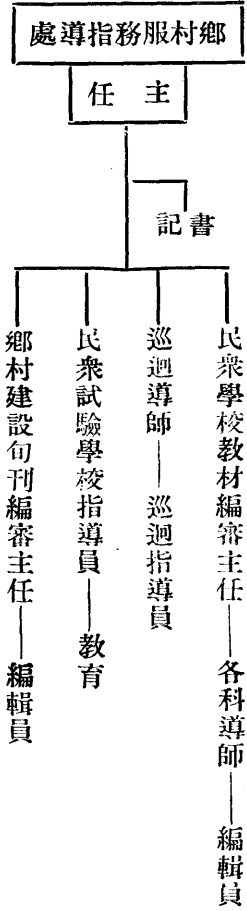 鄉村服務指導處
主任
書記
民衆學校教材編審主任——各科導師——編輯員
巡迴導師——巡迴指導員
民衆試驗學校指導員——教育
鄉村建設旬刊編審主任——編輯員